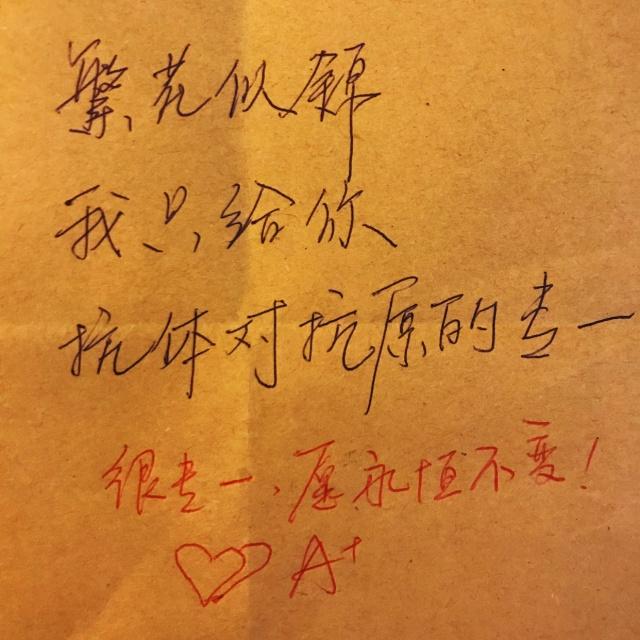 繁花似锦
我只给你
抗体对抗原的专一
很专一、愿永恒不变！
A+